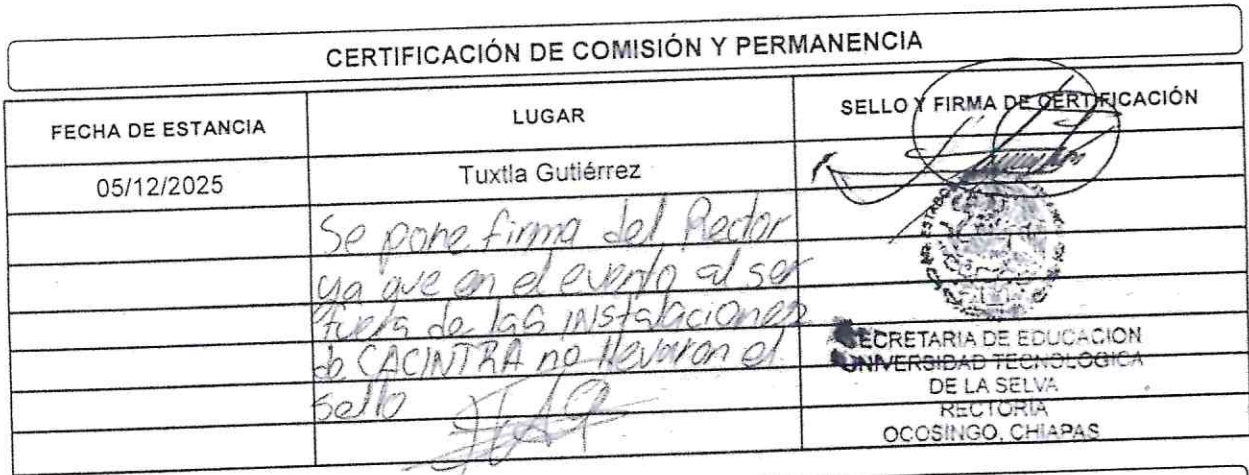 CERTIFICACIÓN DE COMISIÓN Y PERMANENCIA
FECHA DE ESTANCIA
LUGAR
SELLO Y FIRMA DE CERTIFICACIÓN
05/12/2025
Tuxtla Gutiérrez
Se pone firma del Rector
ya que en el evento al ser
fuera de las instalaciones
de CACINTRA no llevaron el
sello
SECRETARIA DE EDUCACION
UNIVERSIDAD TECNOLOGICA
DE LA SELVA
RECTORIA
OCOSINGO, CHIAPAS